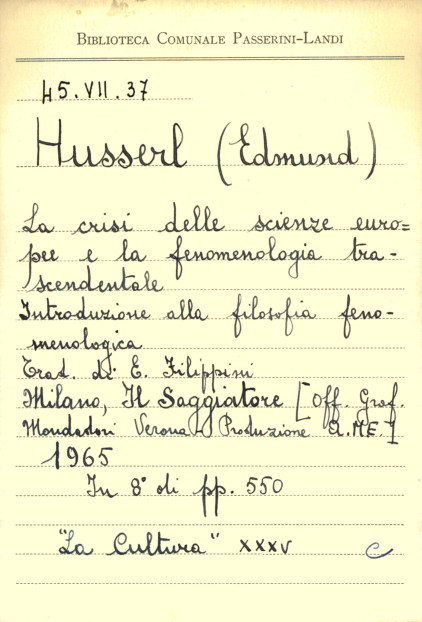 BIBLIOTECA COMUNALE PASSERINI-LANDI
45.VII.37
Husserl (Edmund)
La crisi delle scienze euro=
pee e la fenomenologia tra-
scendentale
Introduzione alla filosofia feno-
menologica
Trad. di E. Filippini
Milano, Il Saggiatore [Off. Graf.
Mondadori Verona Produzione A.ME.]
1965
In 8° di pp. 550
"La Cultura" XXXV
C